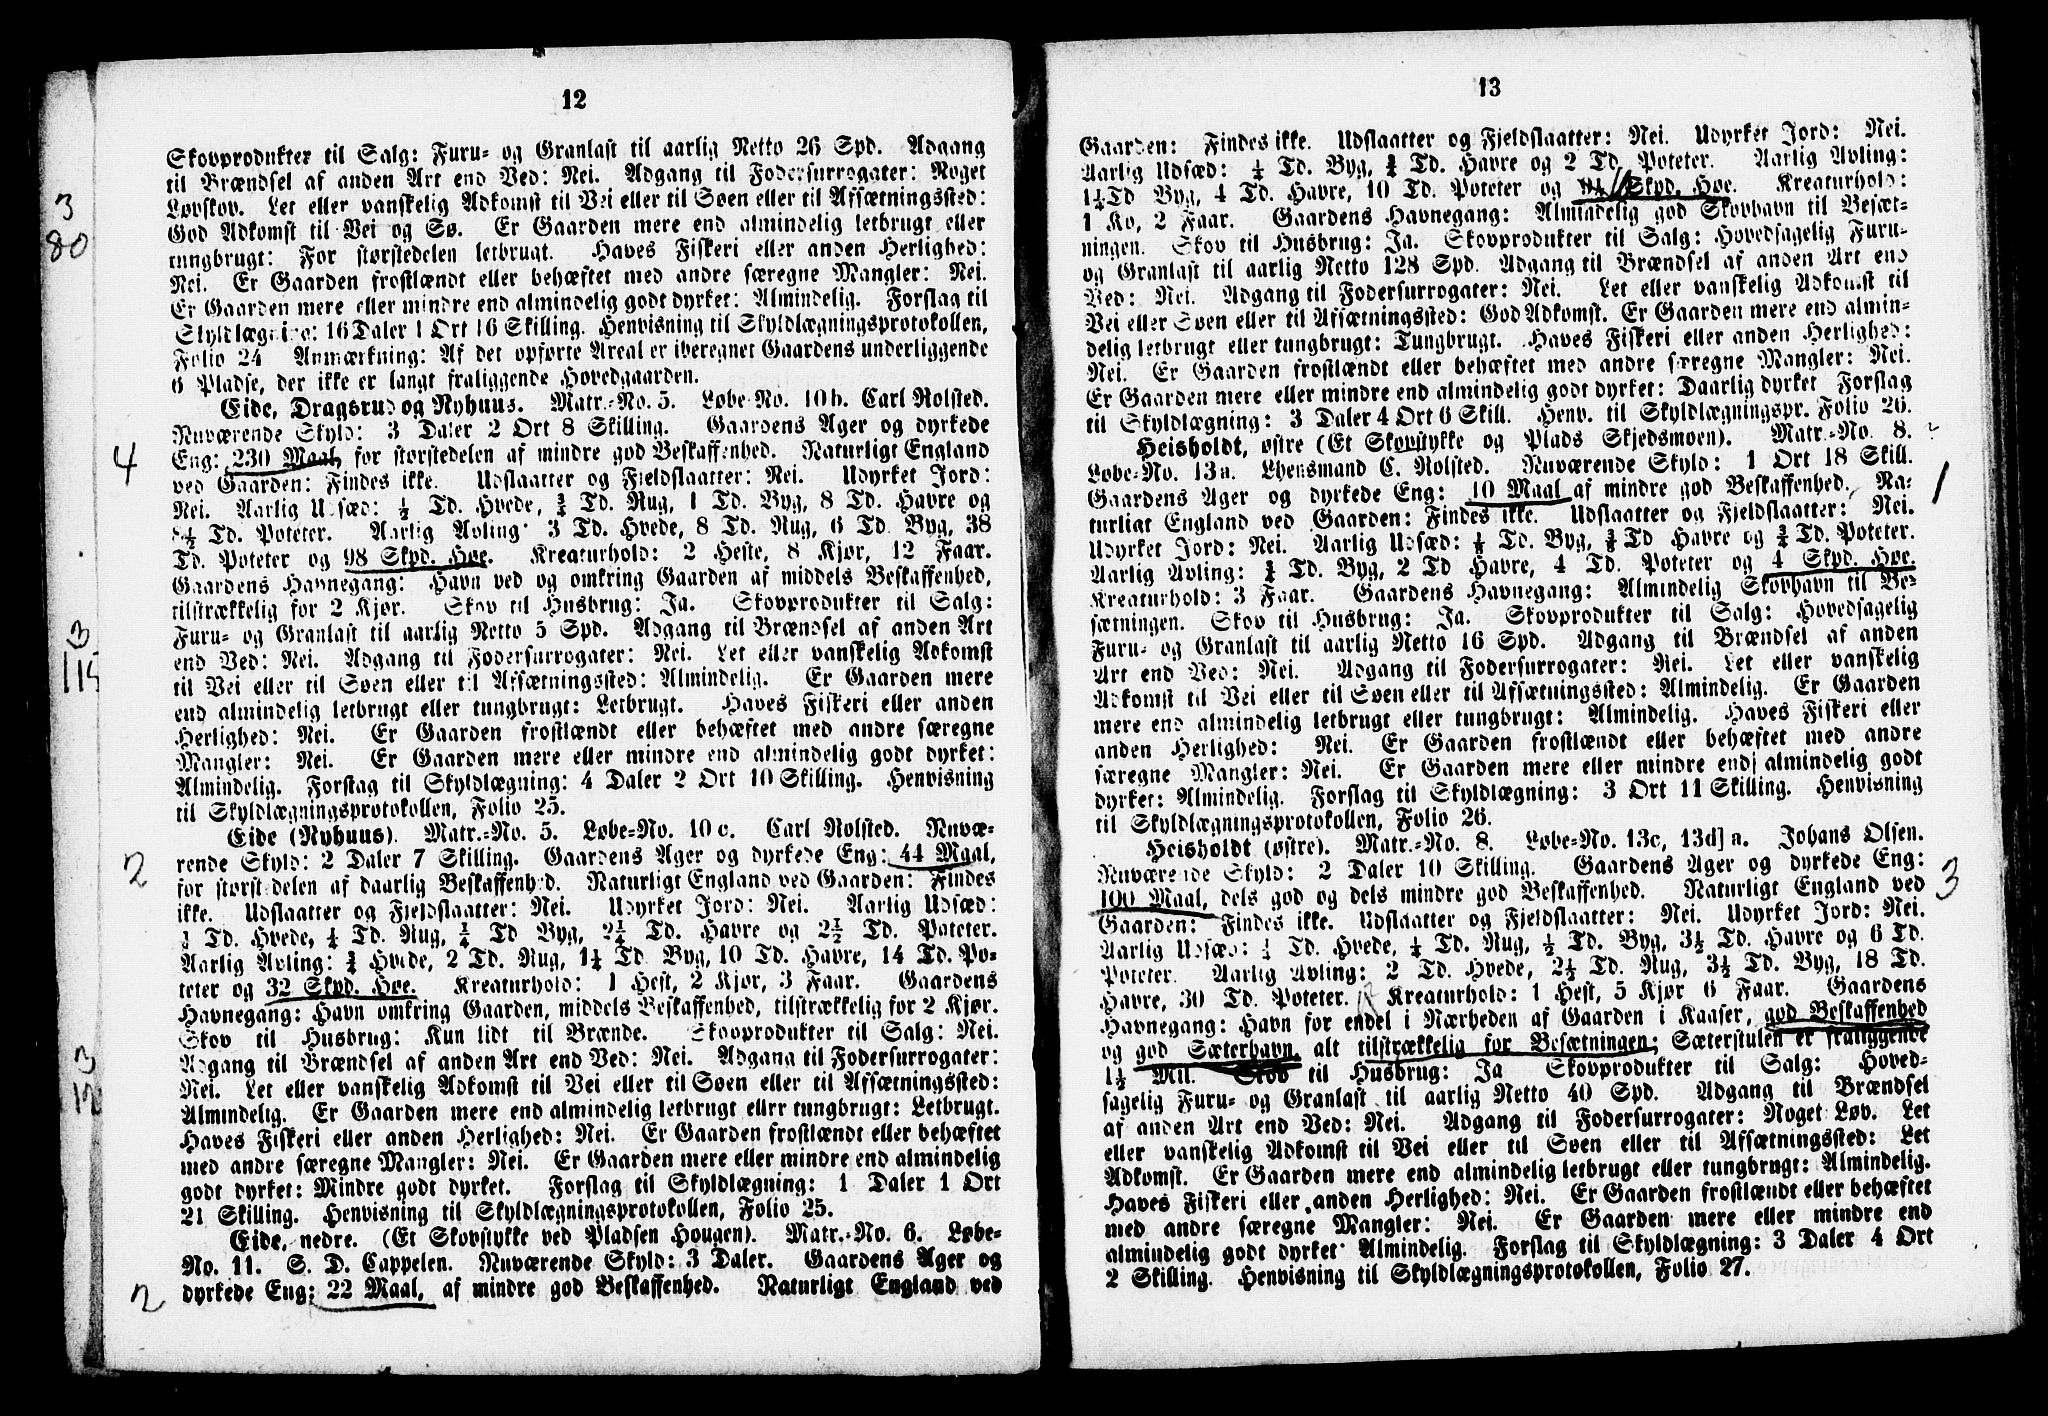 12
Skovprodukter til Salg: Furu- og Granlast til aarlig Netto 26 Spd. Adgang
til Brændsel af anden Art end Ved: Nei. Adgang til Fodersurrogater: Noget
Løvskov. Let eller vanskelig Adkomst til Vei eller til Søen eller til Afsætningssted:
God Adkomst til Vei og Sø. Er Gaarden mere end almindelig letbrugt eller
tungbrugt: For størstedelen letbrugt. Haves Fiskeri eller anden Herlighed:
Nei. Er Gaarden frostlændt eller behæftet med andre særegne Mangler: Nei.
Er Gaarden mere eller mindre end almindelig godt dyrket: Almindelig. Forslag til
Skyldlægning: 16 Daler 1 Ort 16 Skilling. Henvisning til Skyldlægningsprotokollen,
Folio 24 Anmærkning: Af det opførte Areal er iberegnet Gaardens underliggende
6 Pladse, der ikke er langt fraliggende Hovedgaarden.
Eide, Dragsrud og Nyhuus. Matr.-No. 5. Løbe-No. 10b. Carl Rolsted.
Nuværende Skyld: 3 Daler 2 Ort 8 Skilling. Gaardens Ager og dyrkede
Eng: 230 Maal, for størstedelen af mindre god Beskaffenhed. Naturligt England
ved Gaarden: Findes ikke. Udslaatter og Fjeldslaatter: Nei. Udyrket Jord:
Nei. Aarlig Udsæd: ½ Td. Hvede, ¾ Td. Rug, 1 Td. Byg, 8 Td. Havre og
½ Td. Poteter. Aarlig Avling: 3 Td. Hvede, 8 Td. Rug, 6 Td. Byg, 38
Td. Poteter og 98 Skpd. Høe. Kreaturhold: 2 Heste, 8 Kjør, 12 Faar.
Gaardens Havnegang: Havn ved og omkring Gaarden af middels Beskaffenhed,
tilstrækkelig for 2 Kjør. Skov til Husbrug: Ja. Skovprodukter til Salg:
Furu- og Granlast til aarlig Netto 5 Spd. Adgang til Brændsel af anden Art
end Ved: Nei. Adgang til Fodersurrogater: Nei. Let eller vanskelig Adkomst
til Vei eller til Søen eller til Afsætningssted: Almindelig. Er Gaarden mere
end almindelig letbrugt eller tungbrugt: Letbrugt. Haves Fiskeri eller anden
Herlighed: Nei. Er Gaarden frostlændt eller behæftet med andre særegne
Mangler: Nei. Er Gaarden mere eller mindre end almindelig godt dyrket:
Almindelig. Forslag til Skyldlægning: 4 Daler 2 Ort 10 Skilling. Henvisning
til Skyldlægningsprotokollen, Folio 25.
Eide (Nyhuus). Matr.-No. 5. Løbe-No. 10 c. Carl Rolsted. Nuvæ-
rende Skyld: 2 Daler 7 Skilling. Gaardens Ager og dyrkede Eng: 44 Maal,
for størstedelen af daarlig Beskaffenhed. Naturligt England ved Gaarden: Findes
ikke. Udslaatter og Fjeldslaatter: Nei. Udyrket Jord: Nei. Aarlig Udsæd:
Td. Hvede, ¼ Td. Rug, ¼ Td Byg, 2¼ Td. Havre og 2½ Td. Poteter.
Aarlig Avling: ¾ Hvede, 2 Td. Rug, 1¼ Td Byg, 10 Td. Havre, 14 Td. Po-
teter og 32 Skpd. Høe. Kreaturhold: 1 Hest, 2 Kjør, 3 Faar. Gaardens
Havnegang: Havn omkring Gaarden, middels Beskaffenhed, tilstrækkelig for 2 Kjør.
Skov til Husbrug: Kun lidt til Brænde. Skovprodukter til Salg: Nei.
Adgang til Brændsel af anden Art end Ved: Nei. Adgang til Fodersurrogater:
Nei. Let eller vanskelig Adkomst til Vei eller til Søen eller til Afsætningssted:
Almindelig. Er Gaarden mere end almindelig letbrugt ellrr tungbrugt: Letbrugt.
Haves Fiskeri eller anden Herlighed: Nei. Er Gaarden frostlændt eller behæftet
med andre særegne Mangler: Nei. Er Gaarden mere eller mindre end almindelig
godt dyrket: Mindre godt dyrket. Forslag til Skyldlægning: 1 Daler 1 Ort
21 Skilling. Henvisning til Skyldlægningsprotokollen, Folio 25.
Eide, nedre. (Et Skovstykke ved Pladsen Hougen). Matr.-No. 6. Løbe-
No. 11. S. D. Cappelen. Nuværende Skyld: 3 Daler. Gaardens Ager og
dyrkede Eng: 22 Maal, af mindre god Beskaffenhed. Naturligt England ved
3
80
4
3
115
2
3
2
13
Gaarden: Findes ikke. Udslaatter og Fjeldslaatter: Nei. Udyrket Jord: Nei.
Aarlig Udsæd: ¼ Td. Byg, ¾ Td. Havre og 2 Td. Poteter. Aarlig Avling:
1¼ Td Byg, 4 Td. Havre, 10 Td. Poteter og Skpd. Høe. Kreaturhold:
1 Ko, 2 Faar. Gaardens Havnegang: Almindelig god Skovhavn til Besæt-
ningen. Skov til Husbrug: Ja. Skovprodukter til Salg: Hovedsagelig Furu-
og Granlast til aarlig Netto 128 Spd. Adgang til Brændsel af anden Art end
Ved: Nei. Adgang til Fodersurrogater: Nei. Let eller vanskelig Adkomst til
Vei eller Søen eller til Afsætningssted: God Adkomst. Er Gaarden mere end almin-
delig letbrugt eller tungbrugt: Tungbrugt. Haves Fiskeri eller anden Herlighed:
Nei. Er Gaarden frostlændt eller behæftet med andre særegne Mangler: Nei.
Er Gaarden mere eller mindre end almindelig godt dyrket: Daarlig dyrket Forslag
til Skyldlægning: 3 Daler 4 Ort 6 Skill. Henv. til Skyldlægningspr. Folio 26.
Heisholdt, østre (Et Skovstykke og Plads Skjedsmoen). Matr.-No. 8.
Løbe-No. 13a. Lhensmand C. Rolsted. Nuværende Skyld: 1 Ort 18 Skill.
Gaardens Ager og dyrkede Eng: 10 Maal af mindre god Beskaffenhed. Na-
turligt England ved Gaarden: Findes ikke. Udslaatter og Fjeldslaatter: Nei.
Udyrket Jord: Nei. Aarlig Udsæd: ⅛ Td. Byg, ⅜ Td Havre og ¾ Td. Poteter.
Aarlig Avling: ¾ Td. Byg, 2 Td Havre, 4 Td. Poteter og 4 Skpd. Høe.
Kreaturhold: 3 Faar. Gaardens Havnegang: Almindelig Skovhavn til Be-
sætningen. Skov til Husbrug: Ja. Skovprodukter til Salg: Hovedsagelig
Furu- og Granlast til aarlig Netto 16 Spd. Adgang til Brændsel af anden
Art end Ved: Nei. Adgang til Fodersurrogater: Nei. Let eller vanskelig
Adkomst til Vei eller til Søen eller til Afsætningssted: Almindelig. Er Gaarden
mere end almindelig letbrugt eller tungbrugt: Almindelig. Haves Fiskeri eller
anden Herlighed: Nei. Er Gaarden frostlændt eller behæftet med andre
særegne Mangler: Nei. Er Gaarden mere eller mindre end almindelig godt
dyrket: Almindelig. Forslag til Skyldlægning: 3 Ort 11 Skilling. Henvisning
til Skyldlægningsprotokollen, Folio 26.
Heisholdt (østre). Matr.-No. 8. Løbe-No. 13c, 13d] a. Johans Olsen.
Nuværende Skyld: 2 Daler 10 Skilling. Gaardens Ager og dyrkede Eng:
100 Maal, dels god og dels mindre god Beskaffenhed. Naturligt England ved
Gaarden: Findes ikke. Udslaatter og Fjeldslaatter: Nei. Udyrket Jord: Nei.
Aarlig Udsæd: ¼ Td. Hvede, ¼ Td. Rug, ½ Td. Byg, 3½ Td. Havre og 6 Td.
Poteter. Aarlig Avling: 2 Td. Hvede, 2½ Td. Rug, 3½ Td. Byg, 18 Td.
Havre, 30 Td. Poteter. Kreaturhold: 1 Hest, 5 Kjør 6 Faar. Gaardens
Havnegang: Havn for endel i Nærheden af Gaarden i Kaaser, god Beskaffenhed
og god Sæterhavn, alt tilstrækkelig for Besætningen; Sæterstulen er fraliggende
1½ Mil. Skov til Husbrug: Ja Skovprodukter til Salg: Hoved-
sagelig Furu- og Granlast til aarlig Netto 40 Spd. Adgang til Brændsel
af anden Art end Ved: Nei. Adgang til Fodersurrogater: Noget Løv. Let
eller vanskelig Adkomst til Vei eller til Søen eller til Afsætningssted: Let
Adkomst. Er Gaarden mere end almindelig letbrugt eller tungbrugt: Almindelig.
Haves Fiskeri eller anden Herlighed: Nei. Er Gaarden frostlændt eller behæftet
med andre særegne Mangler: Nei. Er Gaarden mere eller mindre end
almindelig godt dyrket Almindelig. Forslag til Skyldlægning: 3 Daler 4 Ort
2 Skilling. Henvisning til Skyldlægningsprotokollen, Folio 27.
1
3